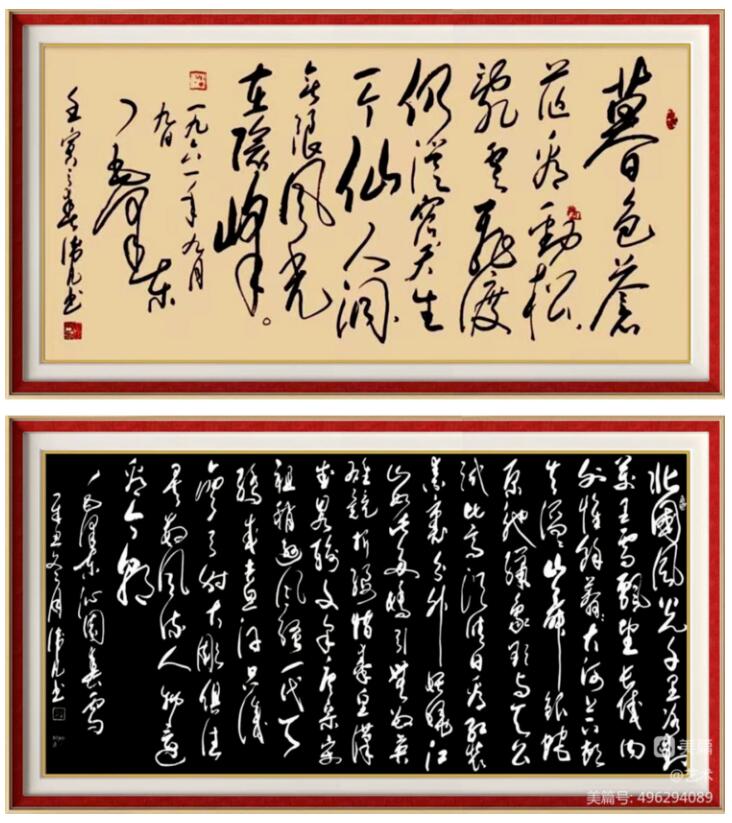 暮色苍
茫看劲松
乱云飞渡
仍从容天生
一个仙人洞
无限风光
在险峰。
一九六一年九月
九日
毛泽东
壬寅之春
北国风光千里冰封
万里雪飘望长城内
外惟余莽莽大河上下顿
失滔滔山舞银蛇
原驰蜡象欲与天公
试比高须晴日看红装
素裹分外妖娆江
山如此多娇引无数英
雄竞折腰惜秦皇汉
武略输文采唐宗宋
祖稍逊风骚一代天
骄成吉思汗只识
弯弓射大雕俱往
矣数风流人物还
看今朝
毛泽东沁园春雪
美篇
@艺术
美篇号: 496294089